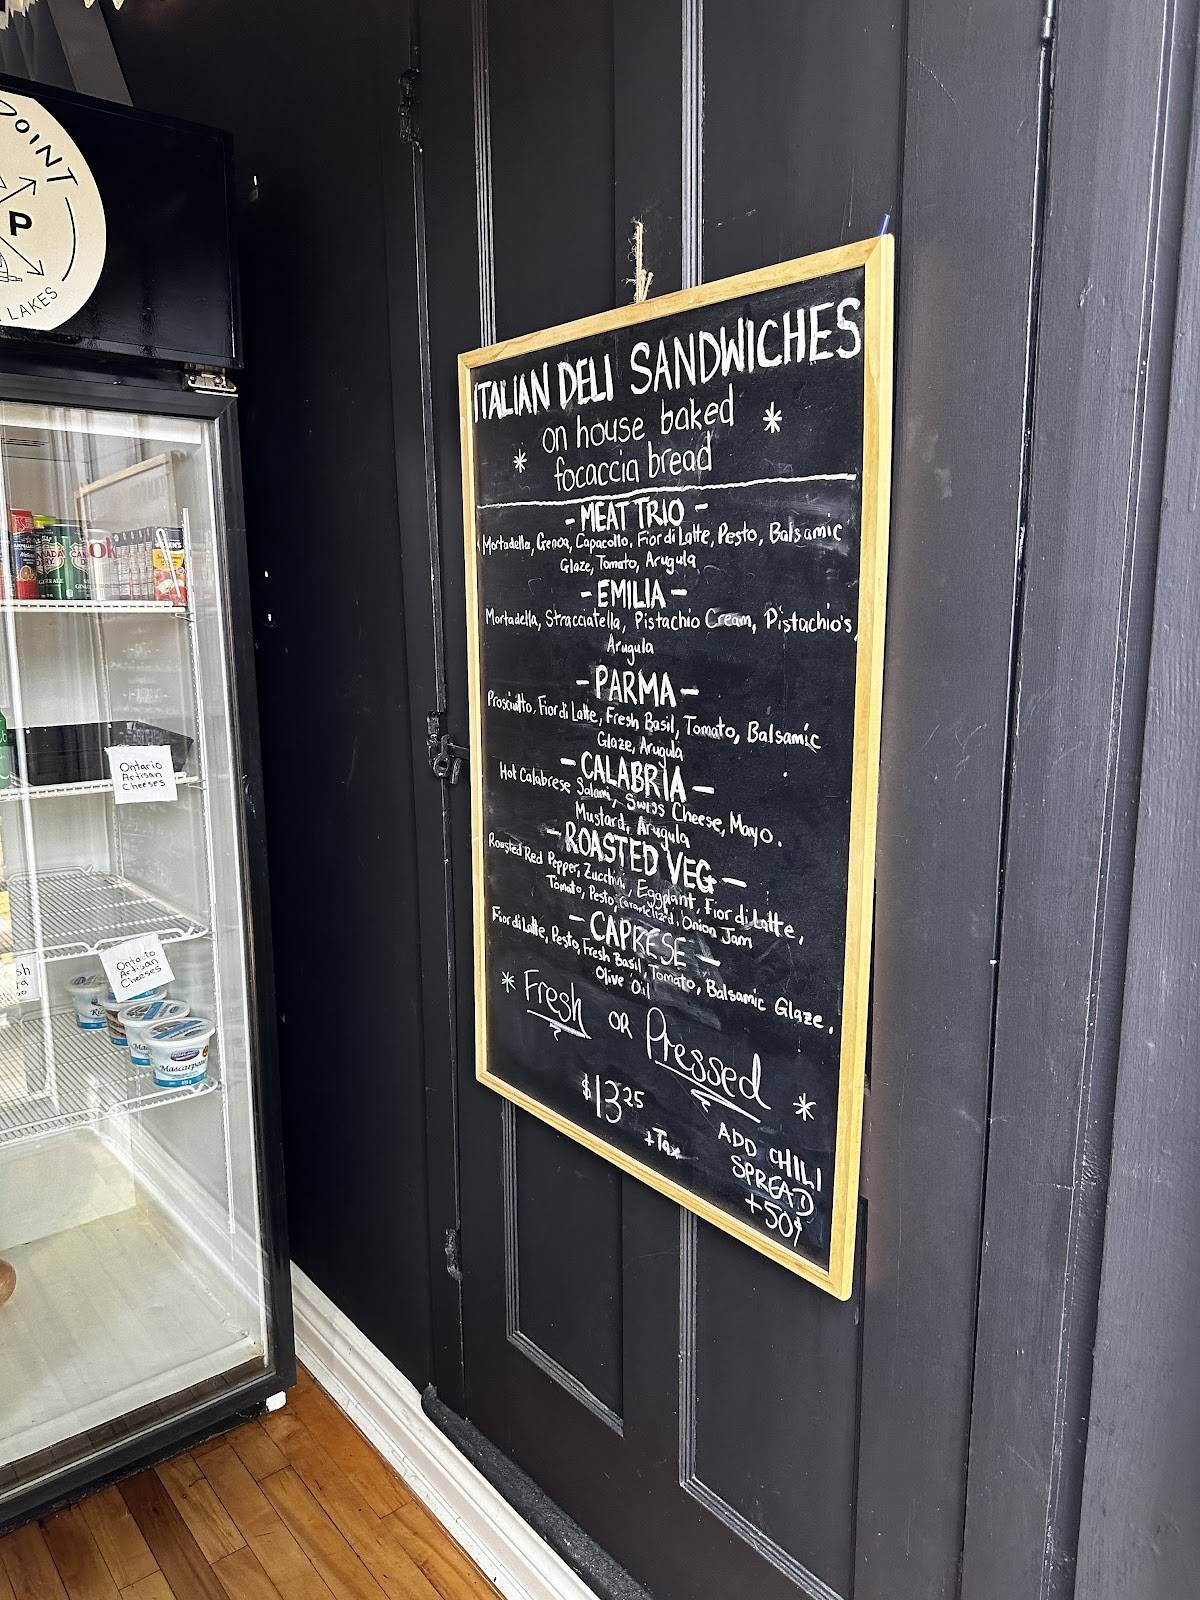 POINT
P
LAKES
ITALIAN DELI SANDWICHES
on house baked
focaccia bread
- MEAT TRIO -
Mortadella, Genoa, Capacollo, Fior di Latte, Pesto, Balsamic
Glaze, Tomato, Arugula
- EMILIA -
Mortadella, Stracciatella, Pistachio Cream, Pistachio's,
Arugula
- PARMA -
Prosciutto, Fior di Latte, Fresh Basil, Tomato, Balsamic
Glaze, Arugula
- CALABRIA -
Hot Calabrese Salami, Swiss Cheese, Mayo.
Mustard, Arugula
- ROASTED VEG -
Roasted Red Pepper, Zucchini, Eggplant, Fior di Latte,
Tomato, Pesto, Caramelized Onion Jam
- CAPRESE -
Fior di Latte, Pesto, Fresh Basil, Tomato, Balsamic Glaze.
Olive Oil
* Fresh OR Pressed *
$13.25
+Tax
ADD CHILI
SPREAD
+50¢
Ontario
Artisan
Cheeses
Ontario
Artisan
Cheeses
Mascarpone